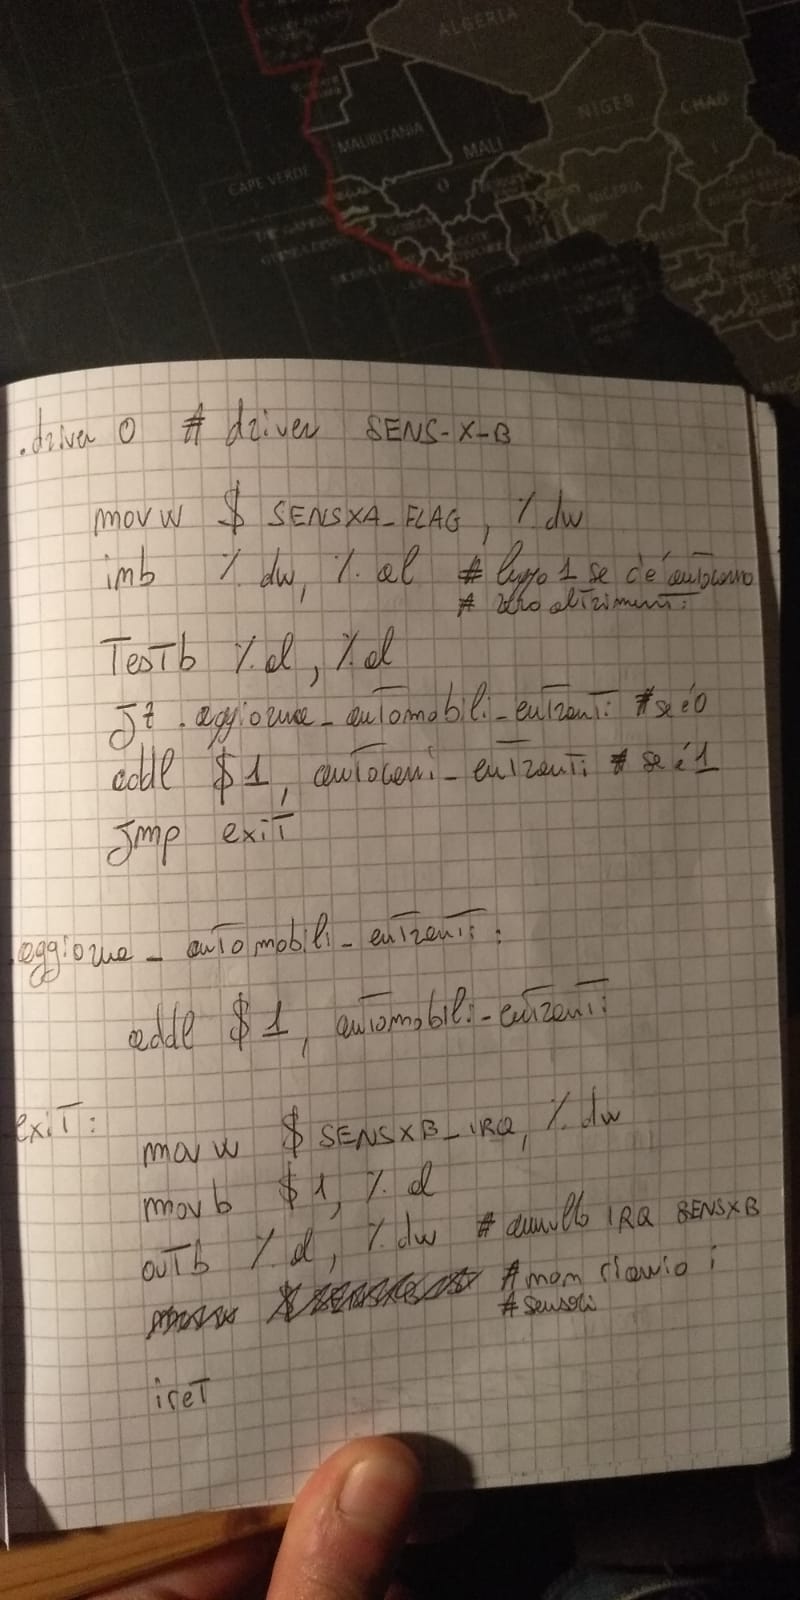 ALGERIA
MAURITANIA
MALI
NIGER
CHAD
CAPE VERDE
NIGERIA
.driver 0 # driver SENS-X-B
movw $ SENSXA_FLAG, %dw
inb %dw, %al # leggo 1 se c'è autocarro
# zero altrimenti
Testb %al, %al
Jz .aggiorna_automobili_entranti #se è 0
addl $1, autocarri_entranti # se è 1
Jmp exit
.aggiorna_automobili_entranti:
addl $1, automobili_entranti
exit:
movw $ SENSXB_IRQ, %dw
movb $1, %al
outb %al, %dw # annullo IRQ SENSXB
# non riavvio i
# sensori
iret